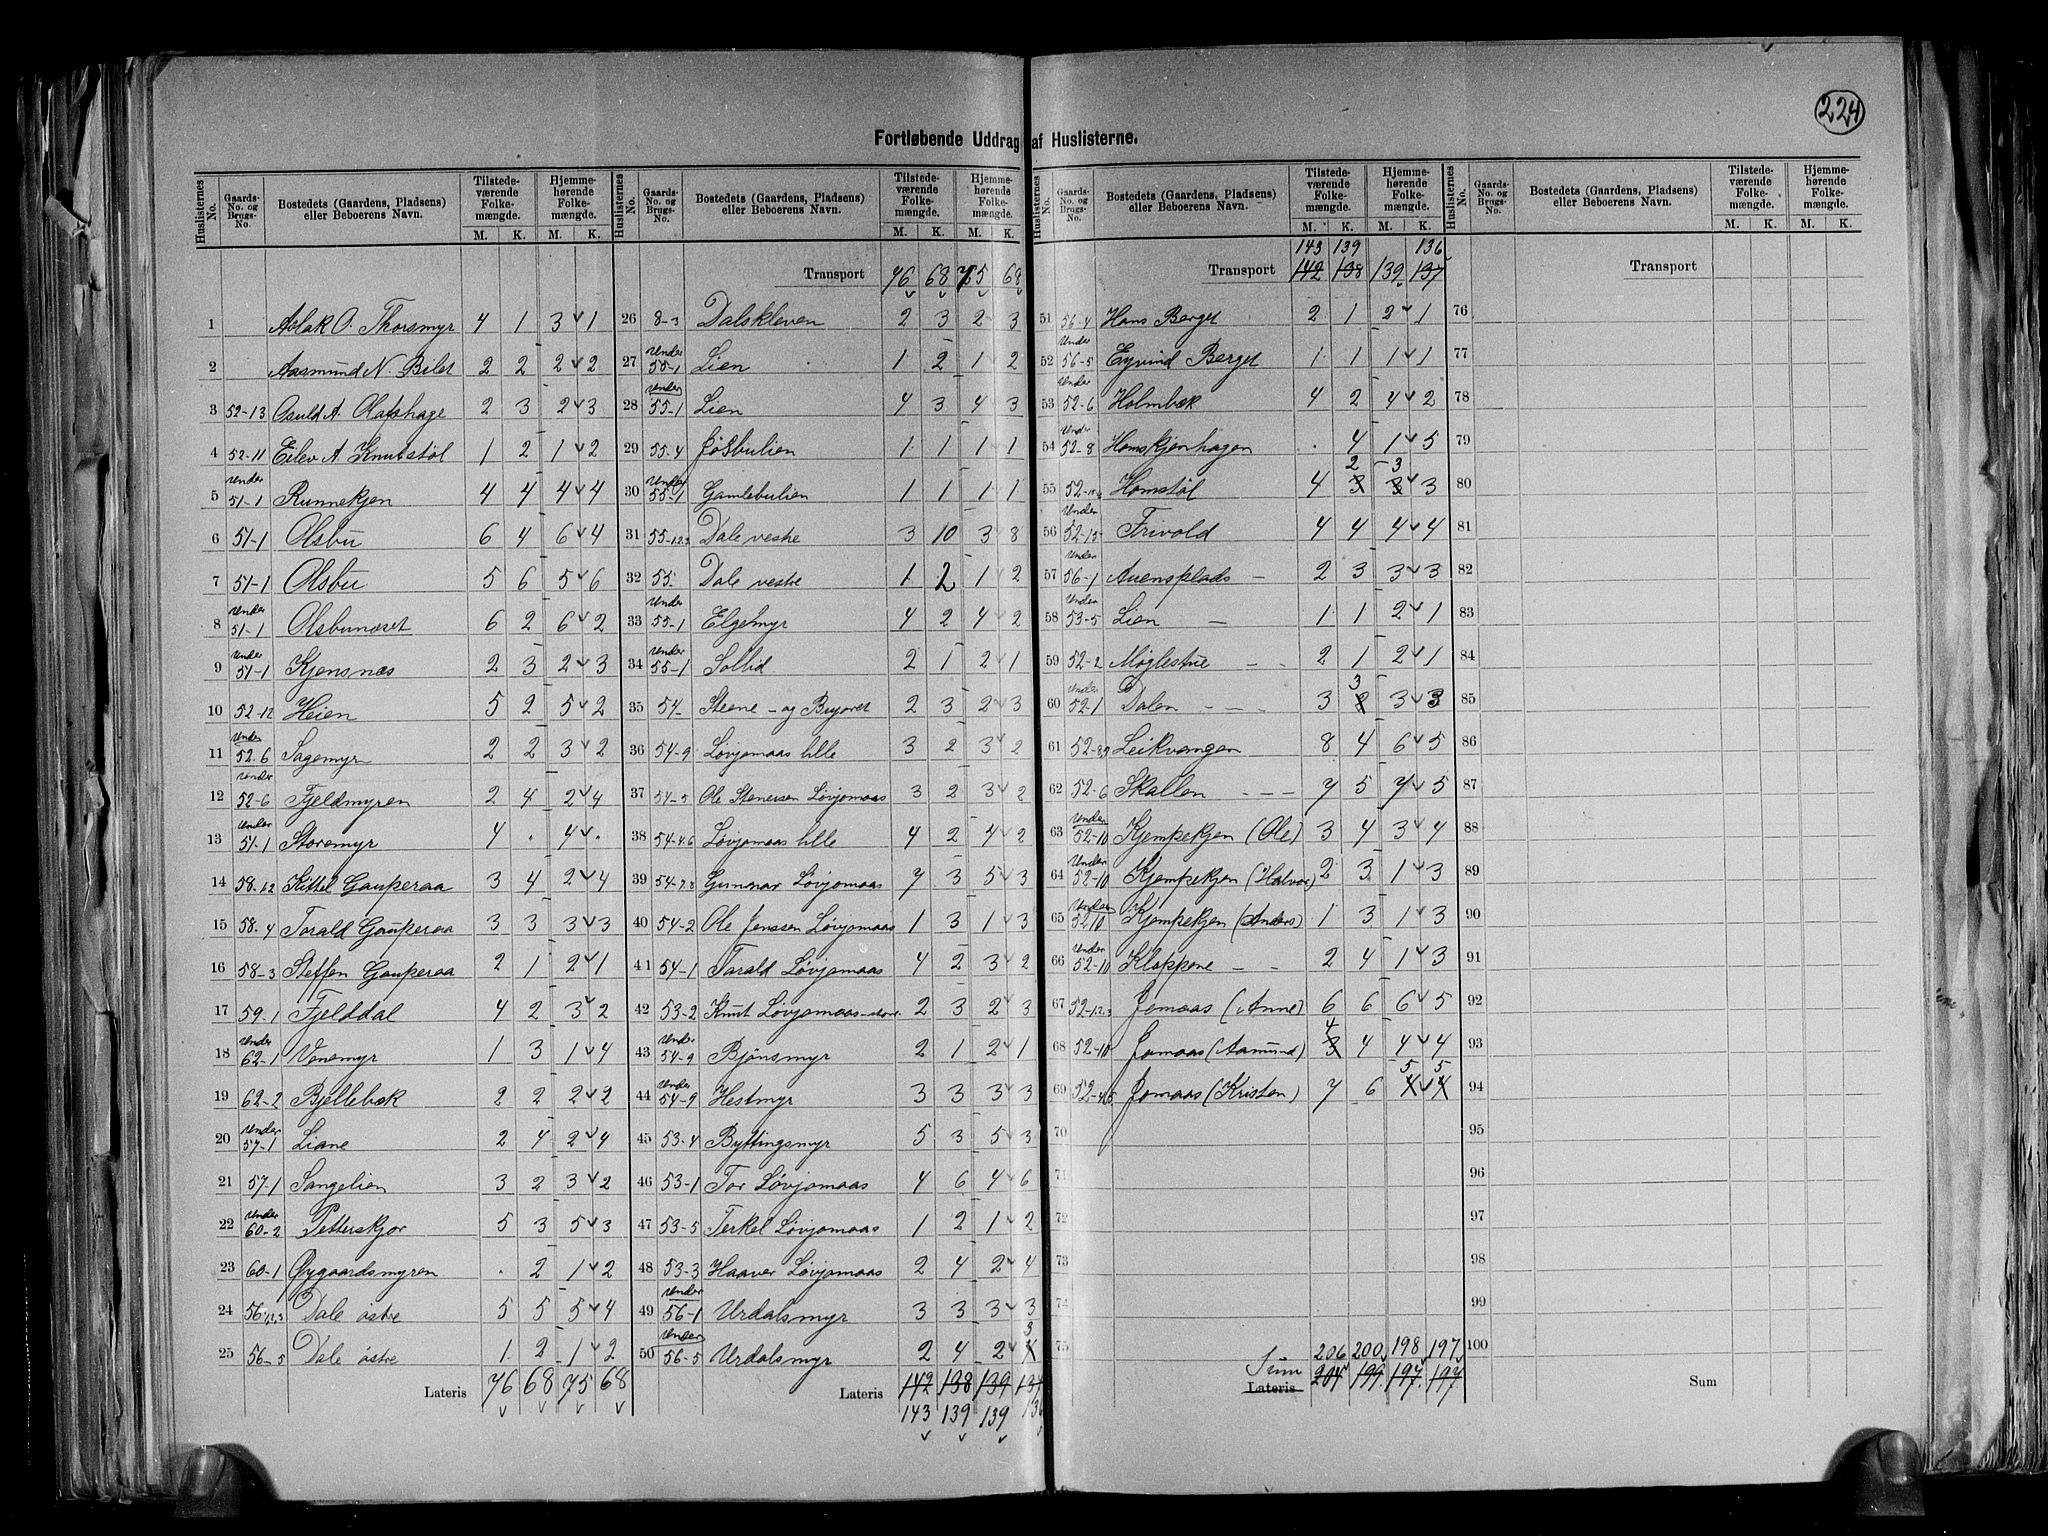 224
Fortløbende Uddrag af Huslisterne.
Huslisternes No. Gaards-No. og Brugs-No. Bostedets (Gaardens, Pladsens) eller Beboerens Navn. Tilstedeværende Folkemængde. Hjemmehørende Folkemængde. M. K. M. K.
1 Aslak O. Thorsmyr 4 1 3 1
2 Aasmund N. Bilet 2 2 2 2
3 52-13 Osuld A. Olafshage 2 3 2 3
4 52-11 Eilev A. Knutstøl 1 2 1 2
5 Under 51-1 Runnekjen 4 4 4 4
6 51-1 Olsbu 6 4 6 4
7 51-1 Olsbu 5 6 5 6
8 Under 51-1 Olsbunæset 6 2 6 2
9 Under 51-1 Kjensnæs 2 3 2 3
10 52-12 Heien 5 2 5 2
11 Under 52.6 Sagemyr 2 2 3 2
12 Under 52-6 Fjeldmyren 2 4 2 4
13 Under 51-1 Storemyr 4 . 4 .
14 58-1.2 Kittel Gauperaa 3 4 2 4
15 58-4 Torald Gauperaa 3 3 3 3
16 58-3 Steffen Gauperaa 2 1 2 1
17 59-1 Fjelddal 4 2 3 2
18 Under 62-1 Vonemyr 1 3 1 4
19 62-2 Bjellebæk 2 2 2 2
20 Under 57-1 Liane 2 4 2 4
21 57-1 Sangelien 3 2 3 2
22 Under 60-2 Petterskjor 5 3 5 3
23 60-1 Øygaardsmyren . 2 1 2
24 56-1.2.3 Dale østre 5 5 5 4
25 56-5 Dale østre 1 2 1 2
Lateris 76 68 75 68
Huslisternes No. Gaards-No. og Brugs-No. Bostedets (Gaardens, Pladsens) eller Beboerens Navn. Tilstedeværende Folkemængde. Hjemmehørende Folkemængde. M. K. M. K.
Transport 76 68 75 68
26 8-3 Dalskleven 2 3 2 3
27 Under 55-1 Lien 1 2 1 2
28 Under 55-1 Lien 4 3 4 3
29 55-4 Jøsbulien 1 1 1 1
30 Under 55-1 Gamlebulien 1 1 1 1
31 55-1.2.3 Dale vestre 3 10 3 8
32 55- Dale vestre 1 2 1 2
33 Under 55-1 Elgemyr 4 2 4 2
34 Under 55-1 Sollid 2 1 2 1
35 54- Steane - og Buøret 2 3 2 3
36 54-9 Løvjomaas lille 3 2 3 2
37 54-5 Ole Stenersen Løvjomaas 3 2 3 2
38 54-4.6 Løvjomaas lille 4 2 4 2
39 54-7.8 Gunnar Løvjomaas 7 3 5 3
40 54-2 Ole Jenssen Løvjomaas 1 3 1 3
41 54-1 Tarald Løvjomaas 4 2 3 2
42 53-2 Knut Løvjomaas-store 2 3 2 3
43 Under 54-9 Bjønsmyr 2 1 2 1
44 Under 54-9 Hestmyr 3 3 3 3
45 53-4 Byttingsmyr 5 3 5 3
46 53-1 Tor Løvjomaas 4 6 4 6
47 53-5 Terkel Løvjomaas 1 2 1 2
48 53-3 Haaver Løvjomaas 2 4 2 4
49 Under 56-1 Urdalsmyr 3 3 3 3
50 Under 56-5 Urdalsmyr 2 4 2 4 3
Lateris 142 138 139 137
143 139 139 136
Huslisternes No. Gaards-No. og Brugs-No. Bostedets (Gaardens, Pladsens) eller Beboerens Navn. Tilstedeværende Folkemængde. Hjemmehørende Folkemængde. M. K. M. K.
143 139 136
Transport 142 138 139 137
51 56-4 Hans Berget 2 1 2 1
52 Under 56-5 Eyvind Berget 1 1 1 1
53 Under 52-6 Holmbæk 4 2 4 2
54 Under 52-8 Homskjenhagen . 4 1 5
2 3
55 52- Homstøl 4 3 3 3
56 Under 52-15 Frivold 4 4 4 4
57 Under 56-1 Auensplads 2 3 3 3
58 Under 53-5 Lien 1 1 2 1
59 52-2 Møglestue 2 1 2 1
3
60 Under 52-1 Dalen 3 2 3 3
61 52-8.9 Leikvangen 8 4 6 5
62 52-6 Skallen 7 5 7 5
63 Under 52-10 Kjempekjen (Ole) 3 4 3 4
64 Under 52-10 Kjempekjen (Halvor) 2 3 1 3
65 Under 52 10 Kjempekjen (Anders) 1 3 1 3
66 Under 52-10 Kloppene 2 4 1 3
67 52-1.2.3 Jomaas (Anne) 6 6 6 5
4
68 52-10 Jomaas (Aamund) 3 4 4 4
5 5
69 52-4.5 Jomaas (Kristen) 7 6 4 4
70
71
72
73
74
75
206 200 198 197
Sum
Lateris 204 199 197 197
Huslisternes No. Gaards-No. og Brugs-No. Bostedets (Gaardens, Pladsens) eller Beboerens Navn. Tilstedeværende Folkemængde. Hjemmehørende Folkemængde. M. K. M. K.
Transport
76
77
78
79
80
81
82
83
84
85
86
87
88
89
90
91
92
93
94
95
96
97
98
99
100
Sum